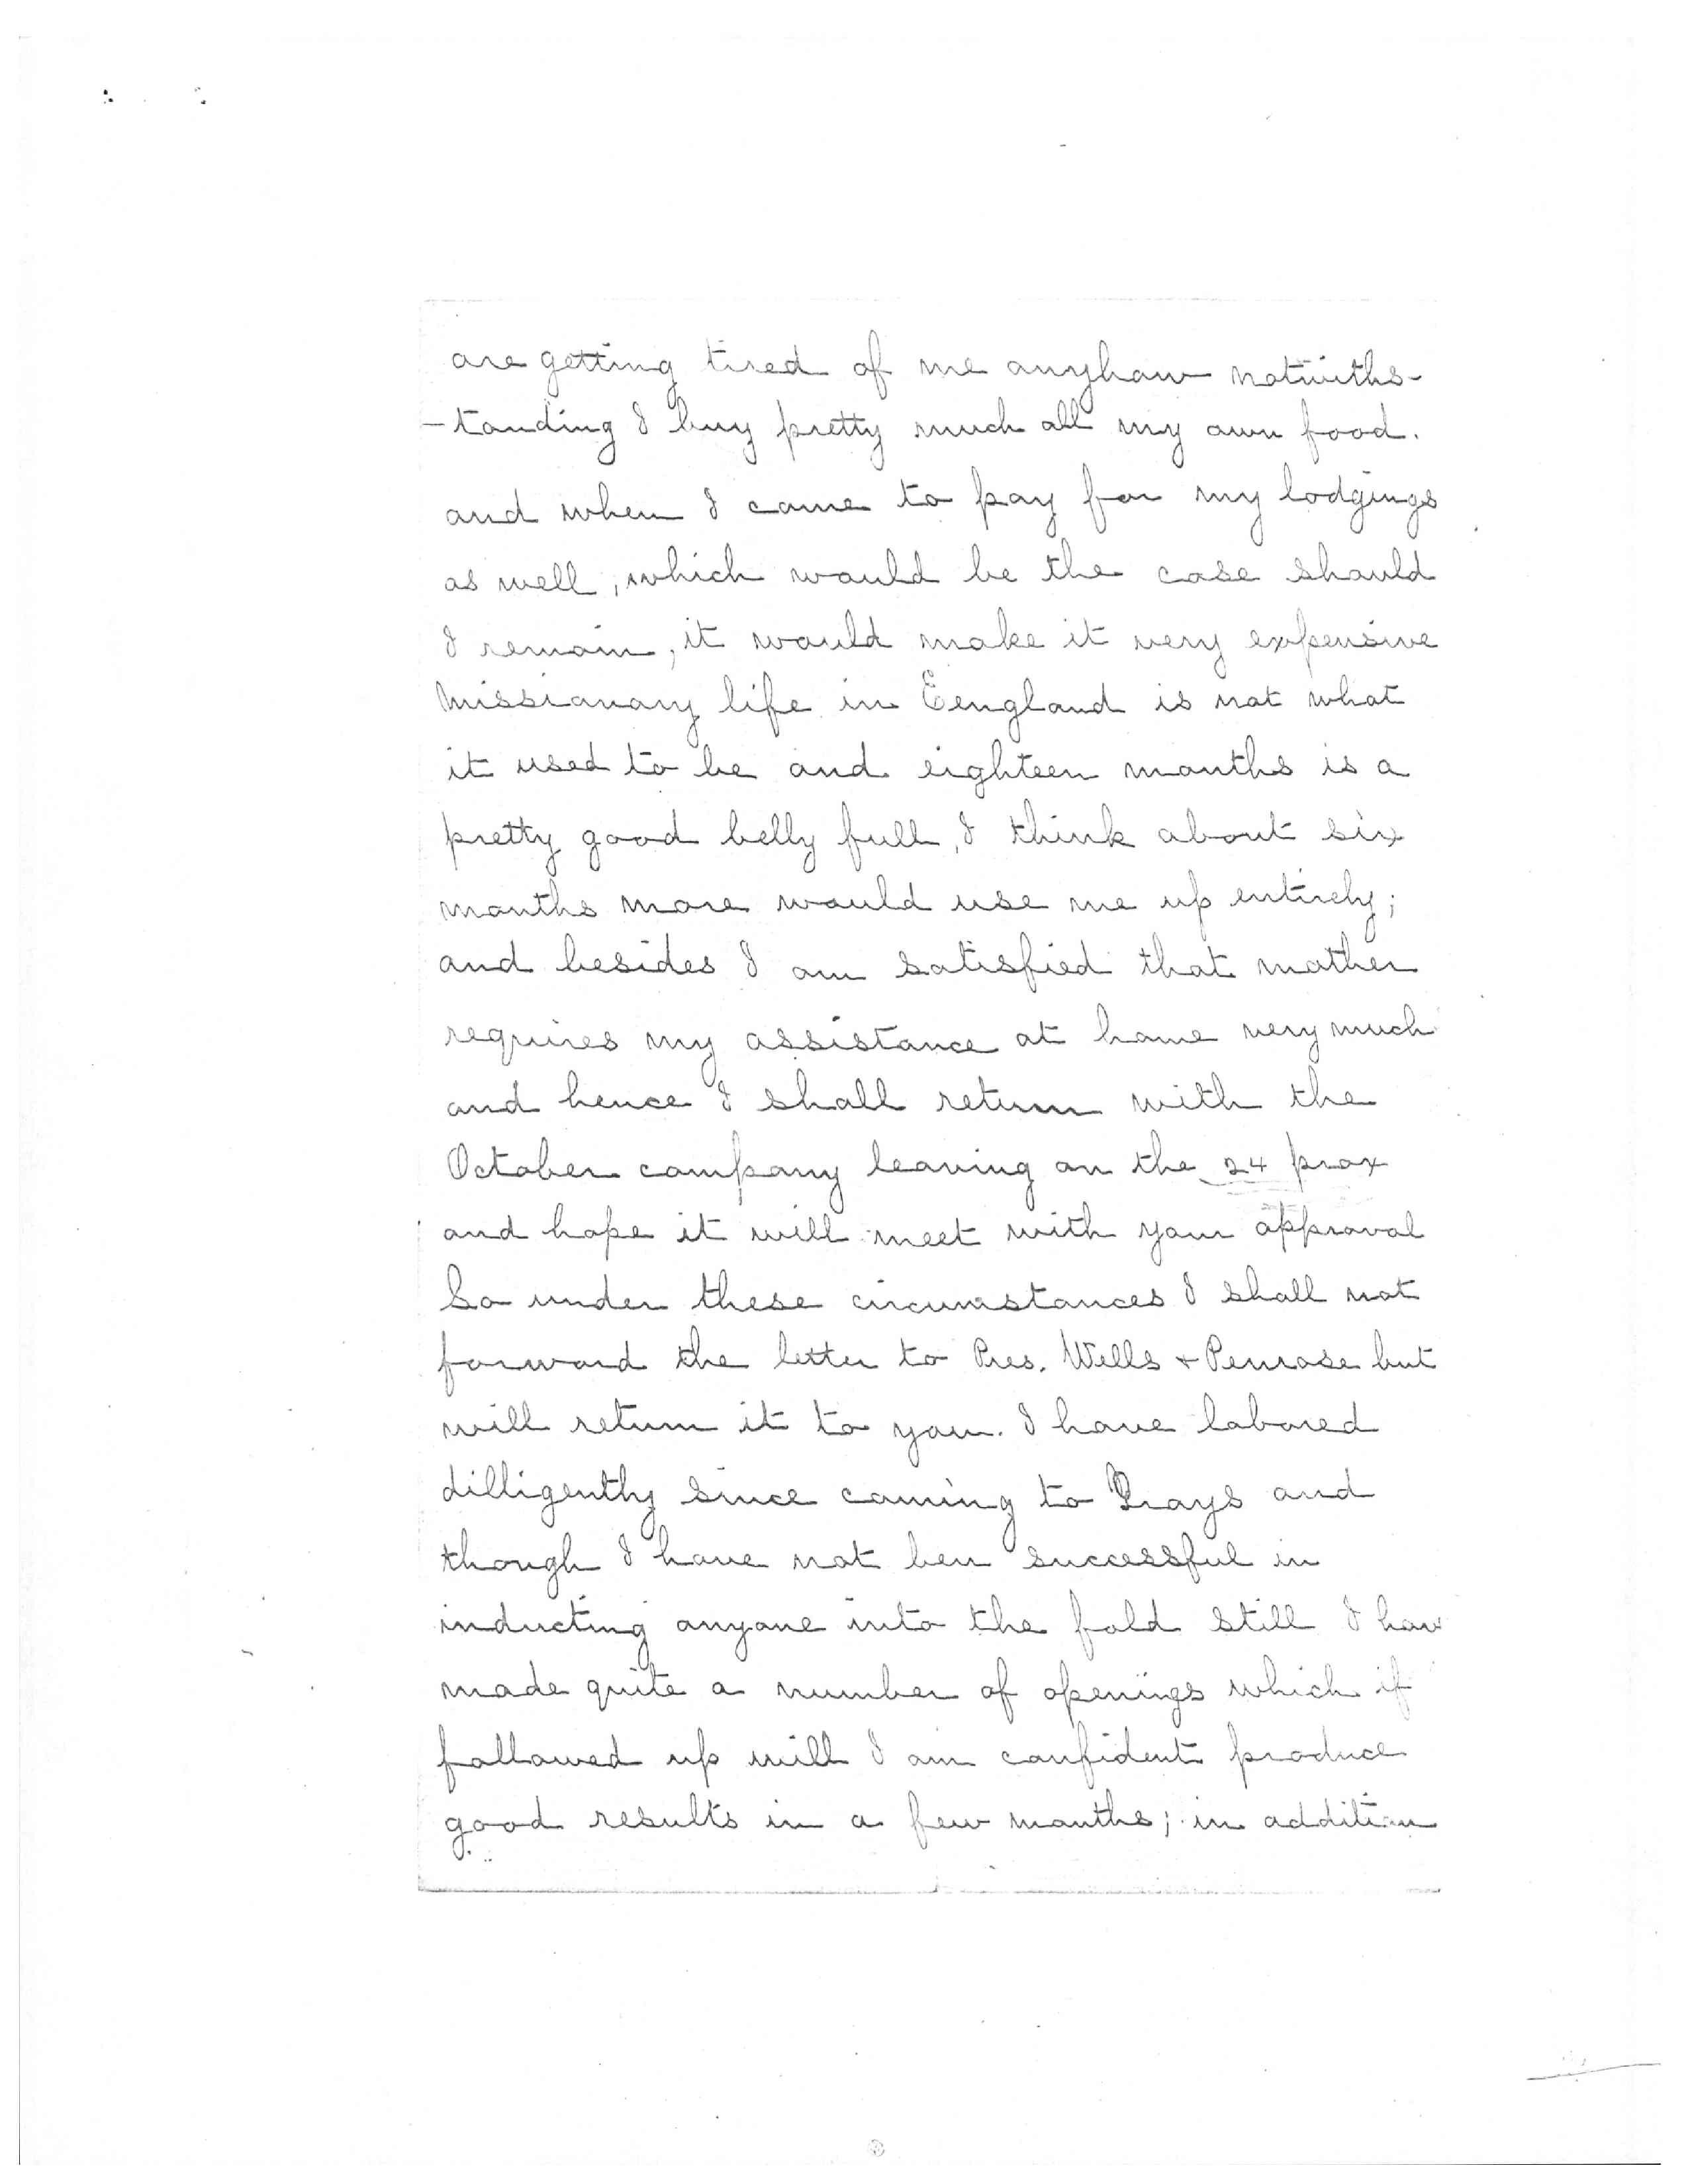 are getting tired of me anyhow notwiths-
-tanding I buy pretty much all my own food.
and when I come to pay for my lodgings
as well, which would be the case should
I remain, it would make it very expensive
Missionary life in Eengland is not what
it used to be and eighteen months is a
pretty good belly full, I think about six
months more would use me up entirely;
and besides I am satisfied that mother
requires my assistance at home very much
and hence I shall return with the
October company leaving on the 24 prox
and hope it will meet with your approval
So under these circumstances I shall not
forward the letter to Pres. Wells & Penrose but
will return it to you. I have labored
dilligently since coming to Grays and
though I have not ben successful in
inducting anyone into the fold still I hav
made quite a number of openings which if
followed up will I am confident produce
good results in a few months; in addition